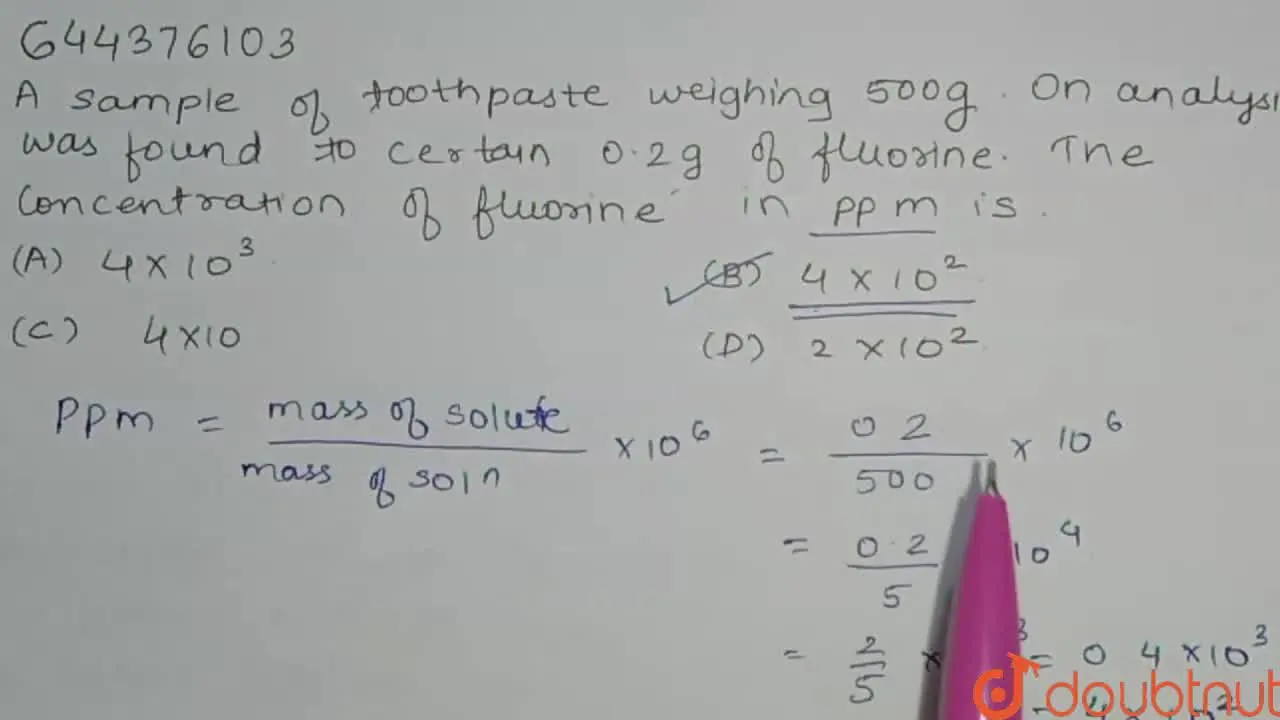 644376103
A sample of toothpaste weighing 500g. On analysi
was found to certain 0.2g of fluorine. The
concentration of fluorine in ppm is.
(A) 4 × 10³ (B) 4 × 10²
(C) 4×10 (D) 2 × 10²
PPm = mass of solute / mass of soln × 10⁶ = 0 2 / 500 × 10⁶
= 0.2 / 5 10⁴
= 2/5 × 3 = 0 4 × 10³
= 4 × 10²
doubtnut